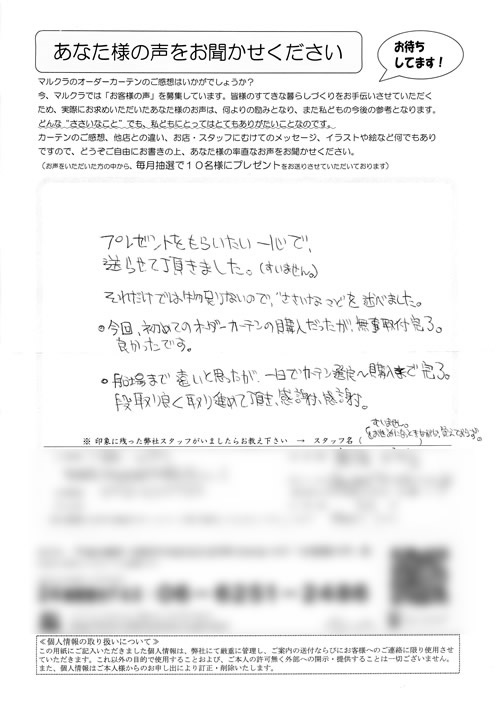 あなた様の声をお聞かせください
お待ち
してます！
マルクラのオーダーカーテンのご感想はいかがでしょうか？
今、マルクラでは「お客様の声」を募集しています。皆様のすてきな暮らしづくりをお手伝いさせていただく
ため、実際にお求めいただいたあなた様のお声は、何よりの励みとなり、また私どもの今後の参考となります。
どんな“ささいなこと”でも、私どもにとってはとてもありがたいことなのです。
カーテンのご感想、他店との違い、お店・スタッフにむけてのメッセージ、イラストや絵など何でもあり
ですので、どうぞご自由にお書きの上、あなた様の率直なお声をお聞かせください。
（お声をいただいた方の中から、毎月抽選で１０名様にプレゼントをお送りさせていただいております）
プレゼントをもらいたい一心で、
送らせて頂きました。(すいません。)
それだけでは物足りないので、“ささいなこと”を述べました。
●今回、初めてのオーダーカーテンの購入だったが、無事取付完了。
良かったです。
●船場まで遠いと思ったが、一日でカーテン選定〜購入まで完了。
段取り良く取り進めて頂き、感謝、感謝。
すいません。
※ 印象に残った弊社スタッフがいましたらお教え下さい → スタッフ名（
06-6251-2486
≪個人情報の取り扱いについて≫
この用紙にご記入いただきました個人情報は、弊社にて厳重に管理し、ご案内の送付ならびにお客様へのご連絡に限り使用させ
ていただきます。これ以外の目的で使用することおよび、ご本人の許可無く外部への開示・提供することは一切ございません。
また、個人情報はご本人様からのお申し出により訂正・削除いたします。